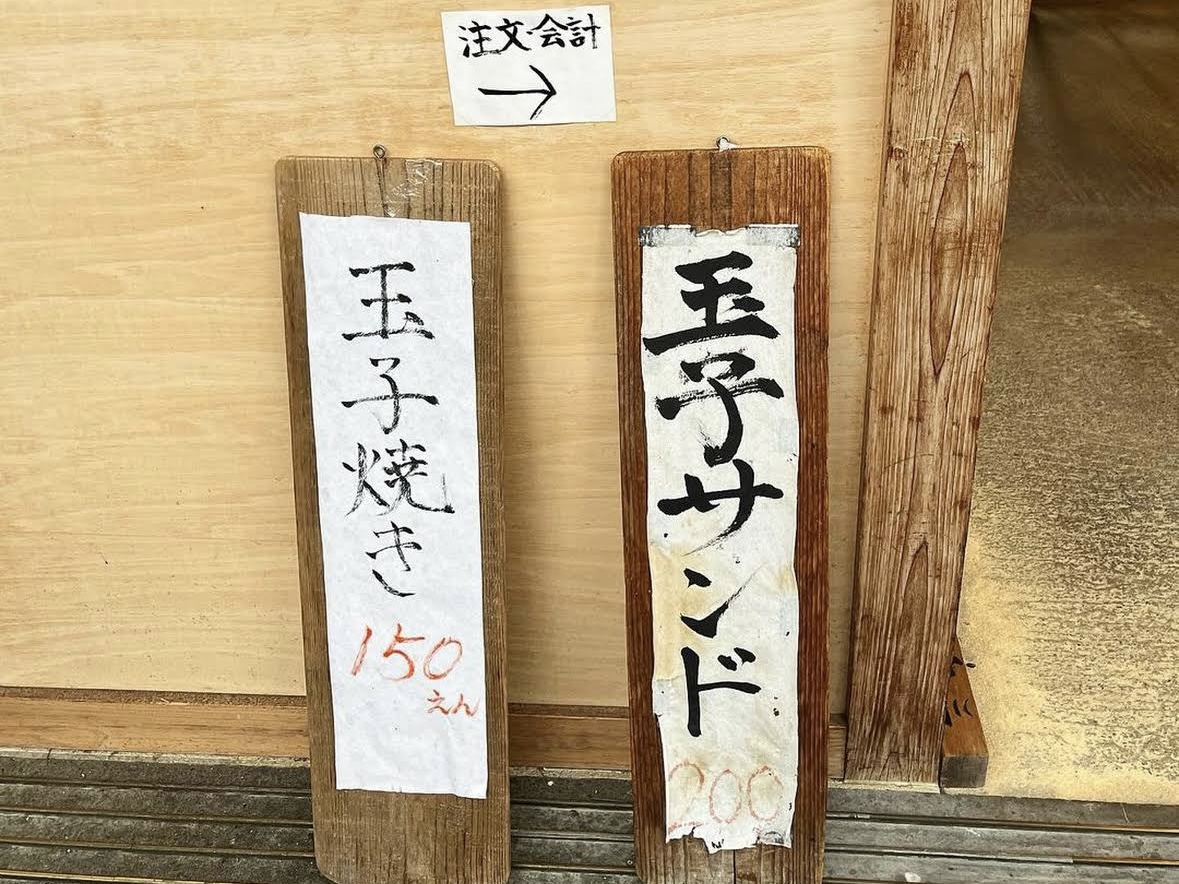 注文・会計
→
玉子焼き
150
えん
玉子サンド
200